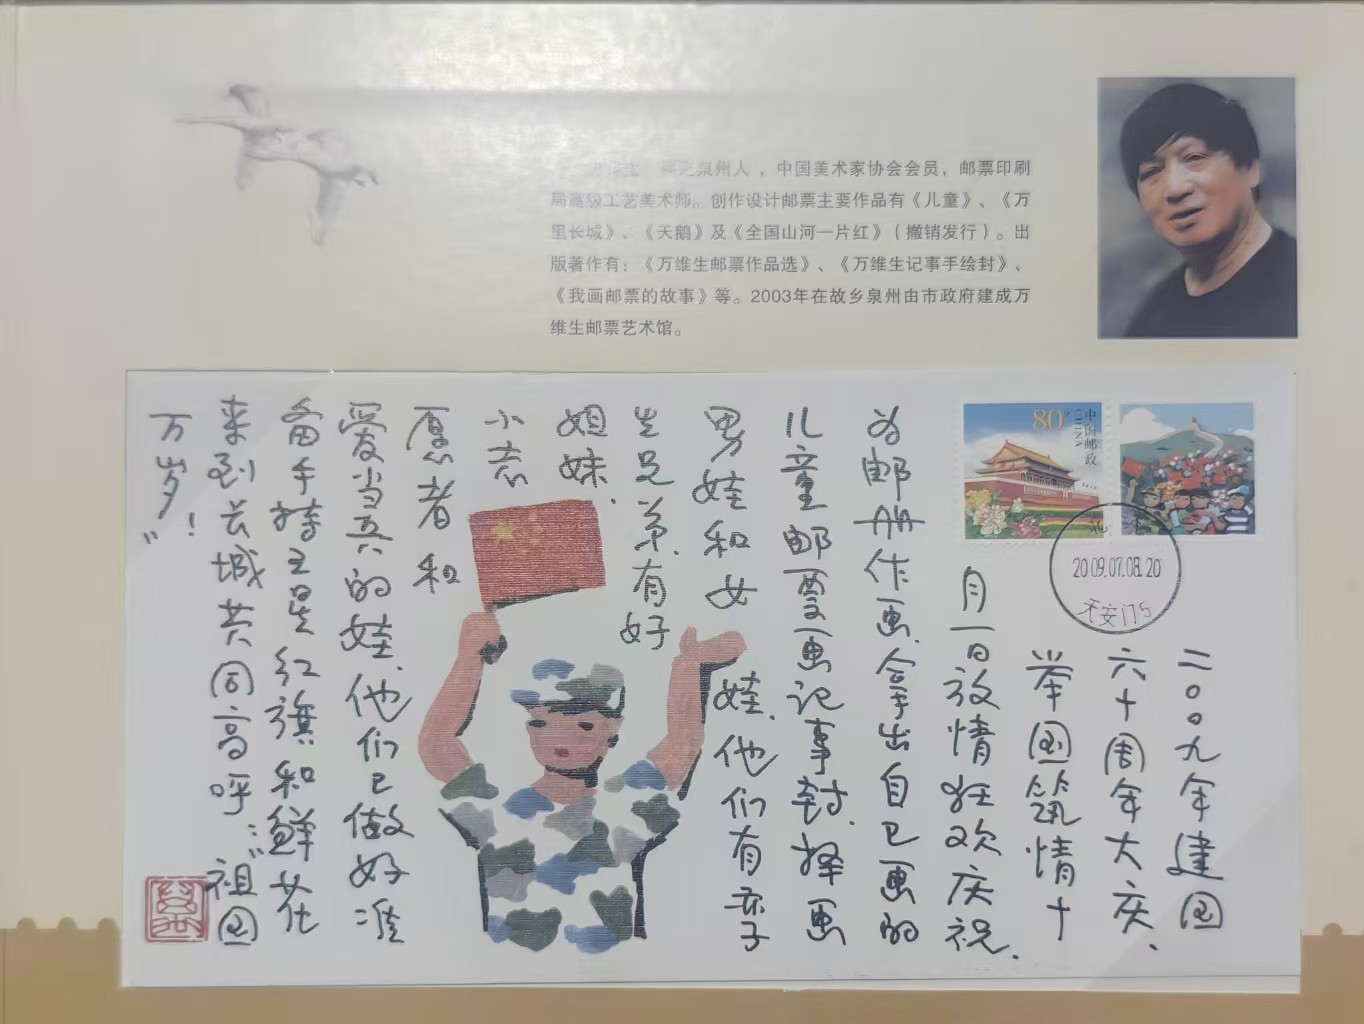 泉州人，中国美术家协会会员，邮票印刷
局高级工艺美术师。创作设计邮票主要作品有《儿童》、《万
里长城》、《天鹅》及《全国山河一片红》（撤销发行）。出
版著作有：《万维生邮票作品选》、《万维生记事手绘封》、
《我画邮票的故事》等。2003年在故乡泉州由市政府建成万
维生邮票艺术馆。
80分
中国邮政
CHINA
2009.07.08.20
二〇〇九年建国
六十周年大庆、
举国筑情十
月一日放情狂欢庆祝.
为邮册作画.拿出自己画的
儿童邮票画记事封.择画
男娃和女娃.他们有孪
生兄弟.有好
姐妹.
小志
愿者和
爱当兵的娃.他们已做好准
备手持五星红旗和鲜花
来到长城共同高呼:"祖国
万岁!"